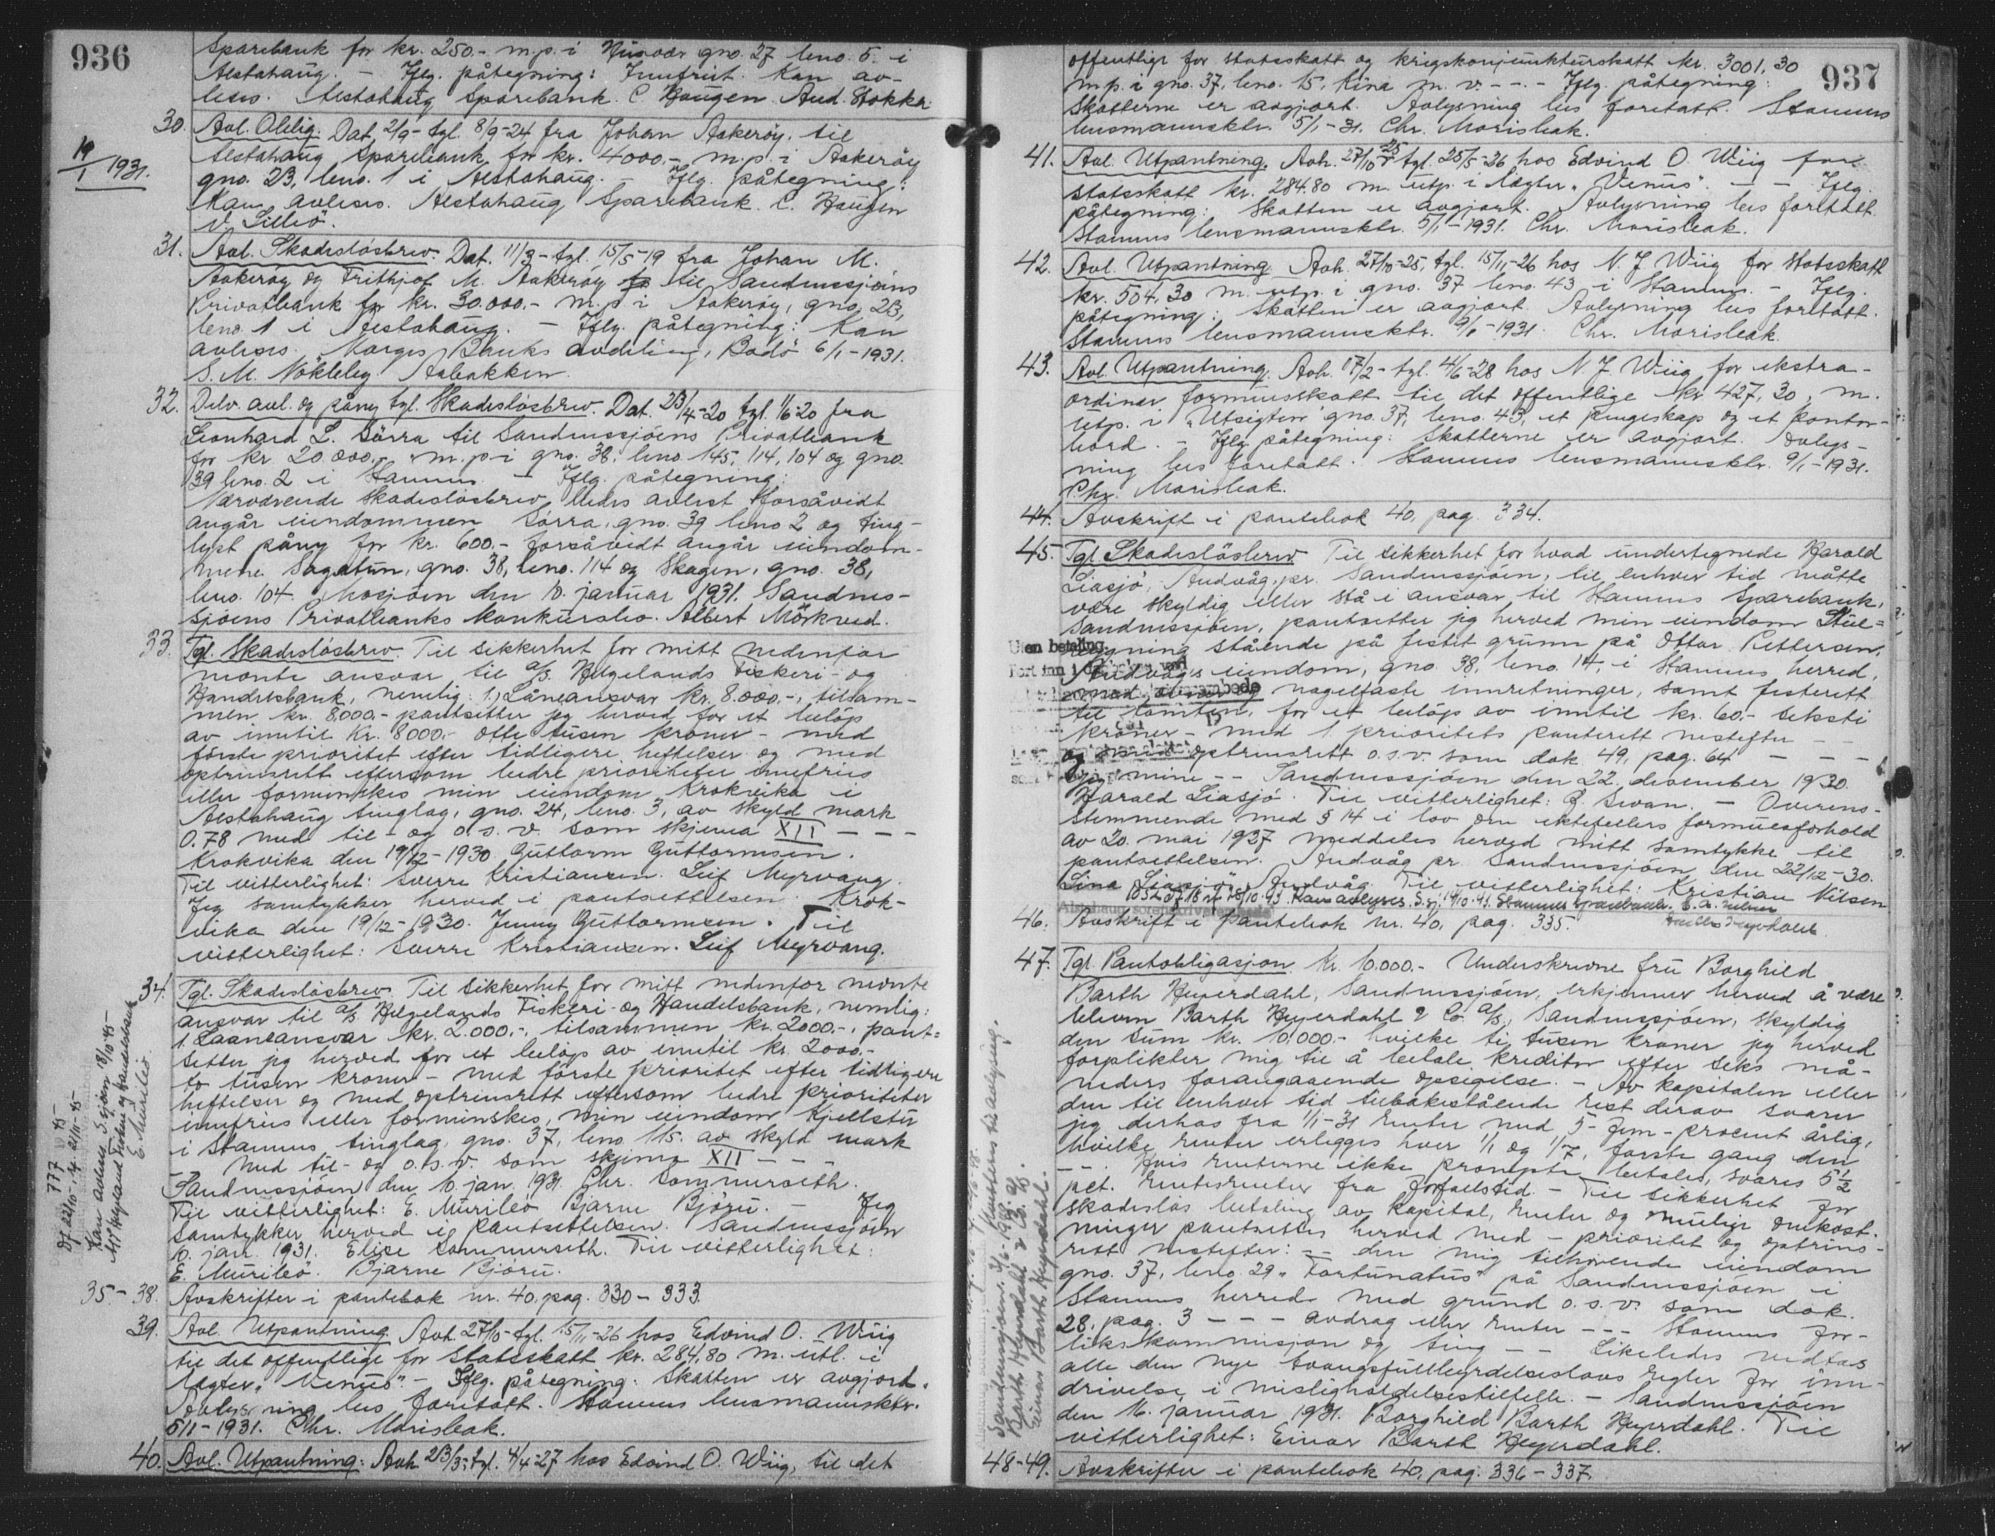 936
Sparebank for kr. 250.- m.p. i gno. 27 bno. 5. i
Alstahaug. - Iflg. påtegning: Innfriet. Kan av-
leses. Alstahaug Sparebank. C. Haugen Aud. Stokka
30. Avl. Oblig. Dat. 2/9 - tgl. 8/9-24 fra Johan Aakerøy til
Alstahaug Sparebank for kr. 4000,- m.p. i Aakerøy
14/1 1931.
gno. 23, bno. 1 i Alstahaug. - Iflg. påtegning:
Kan avleses. Alstahaug Sparebank. C. Haugen
V. Silliö.
31. Avl. Skadesløsbrev. Dat. 11/3 - tgl. 15/5-19 fra Johan M.
Aakerøy og Frithjof M. Aakerøy til Sandnessjøens
Privatbank for kr. 30.000.- m.p. i Aakerøy, gno. 23,
bno. 1 i Alstahaug. - Iflg. påtegning: Kan
avleses. Norges Banks avdeling, Bodö 6/1-1931.
S. M. Nökleby Aabakken.
32. Delv. avl. og påny tgl. Skadesløsbrev. Dat. 23/4-20 tgl. 1/6-20 fra
Leonhard L. Sörra til Sandnessjøens Privatbank
for kr. 20.000,- m.p. i gno. 38, bno. 145, 114, 104 og gno.
39 bno. 2 i Stamnes. - Iflg. påtegning:
Nærværende skadesløsbrev bedes avlest forsåvidt
angår eiendommen Sörra, gno. 39 bno 2 og ting-
lyst påny for kr. 600,- forsåvidt angår eiendom-
mene Sagatun, gno. 38, bno. 114 og Skogen, gno. 38,
bno. 104. Mosjøen den 10. januar 1931. Sandnes-
sjøens Privatbanks konkursbo. Albert Mörkved.
33. Tgl. Skadesløsbrev. Til sikkerhet for mitt nedenfor
nevnte ansvar til A/S Helgelands Fiskeri- og
Handelsbank, nemlig: 1, Låneansvar kr. 8.000.-, tilsam-
men kr. 8000.- pantsetter jeg herved for et beløp
av inntil kr. 8000.- otte tusen kroner - med
første prioritet efter tidligere heftelser og med
optrinsrett eftersom bedre prioriteter innfries
eller forminskes min eiendom Krokvika i
Alstahaug tinglag, gno. 24, bno. 3, av skyld mark
0.78 med til- og o.s.v. som skjema XII - - -
Krokvika den 19/12-1930 Guttorm Guttormsen.
Til vitterlighet: Sverre Kristiansen. Leif Myrvang.
Jeg samtykker herved i pantsettelsen. Krok-
vika den 19/12-1930. Jenny Guttormsen. Til
vitterlighet: Sverre Kristiansen. Leif Myrvang.
34. Tgl. Skadesløsbrev. Til sikkerhet for mitt nedenfor nevnte
ansvar til A/S Helgelands Fiskeri- og Handelsbank, nemlig:
1. Laaneansvar kr. 2.000.-, tilsammen kr. 2000.-, pant-
setter jeg herved for et beløp av inntil kr. 2000.-
to tusen kroner - med første prioritet efter tidligere
heftelser og med optrinsrett eftersom bedre prioriteter
innfries eller forminskes, min eiendom Kjellstu
i Stamnes tinglag, gno. 37, bno. 115. av skyld mark
- med til- og o.s.v. som skjema XII - - -
Sandnessjøen den 10. jan. 1931. Chr. Sommerseth.
Til vitterlighet: E. Murileö Bjarne Björu. - Jeg
samtykker herved i pantsettelsen. Sandnessjøen
10. jan. 1931. Elise Sommerseth. Til vitterlighet:
E. Murileö. Bjarne Björu.
Df 22/10-14. 21/11-45
Kan avleses S.sjøen 18/10-45-
A/S Helgeland Fiskeri og Handelsbank
E. Murileö.
35.-38. Avskrifter i pantebok nr. 40, pag. 330-333.
39. Avl. Utpantning. Avh. 27/10-tgl. 15/11-26 hos Edvind O. Wiig
til det offentlige for statsskatt kr. 284,80 m. utl. i
Nægter "Venus". - Iflg. påtegning: Skatten er avgjort.
Avlysning bes foretatt. Stamnes lensmannsktr.
5/1-1931. Chr. Morisbak.
40. Avl. Utpantning: Avh. 23/3-tgl. 4/4-27 hos Edvind O. Wiig, til det
937
offentlige for statsskatt og krigskonjunkturskatt kr. 3001,30
m.p. i gno. 37, bno. 15, Kina m. v. - - - Iflg. påtegning:
Skatterne er avgjort. Avlysning bes foretatt. Stamnes
lensmannsktr. 5/1-31. Chr. Morisbak.
41. Avl. Utpantning. Avh. 27/10 25 tgl. 25/5-26 hos Edvind O. Wiig for
statsskatt kr. 284.80 m. utp. i Nægter "Venus". - - Iflg.
påtegning: Skatten er avgjort. Avlysning bes foretatt.
Stamnes lensmannsktr. 5/1-1931. Chr. Morisbak.
42. Avl. Utpantning. Avh. 27/10-25, tgl. 15/11-26 hos N. J. Wiig for statsskatt
kr. 504,30 m. utp. i gno. 37 bno. 43 i Stamnes. - Iflg.
påtegning: Skatten er avgjort. Avlysning bes foretatt.
Stamnes lensmannsktr. 9/1-1931. Chr. Morisbak.
43. Avl. Utpantning. Avh. 17/2 - tgl. 4/6-28 hos N. J. Wiig for ekstra-
ordinær formuesskatt til det offentlige kr. 427,30, m.
utp. i "Utsigten" gno. 37, bno. 43, et pengeskap og et kontor-
bord. - Iflg. påtegning: Skatterne er avgjort. Avlys-
ning bes foretatt. Stamnes lensmannsktr. 9/1-1931.
Chr. Morisbak.
44. Avskrift i pantebok 40, pag. 334.
45. Tgl. Skadesløsbrev. Til sikkerhet for hvad undertegnede Harald
Liasjö, Andvåg, pr. Sandnessjøen, til enhver tid måtte
være skyldig eller stå i ansvar til Stamnes Sparebank,
Sandnessjøen, pantsetter jeg herved min eiendom
bygning stående på festet grunn på Ottar Pettersens,
Andvågs eiendom, gno. 38, bno. 14 i Stamnes herred,
med nagelfaste innretninger, samt festerett
til tomten, for et beløp av inntil kr. 60.- seksti
kroner - med 1 prioritets panterett nestefter
og med optrinsrett o.s.v. som dok. 49, pag. 64 - - -
og mine - - Sandnessjøen den 22. desember 1930.
Harald Liasjö. Til vitterlighet: R. Swan. - Overens-
stemmende med § 14 i lov om ektefellers formuesforhold
av 20. mai 1927 meddeles herved mitt samtykke til
pantsettelsen. Andvåg pr. Sandnessjøen, den 22/12-30.
Lina Liasjö, Andvåg. Til vitterlighet: Kristian Nilsen
Kan avlyses. S.sj. 14/10-43. Stamnes Sparebank.
Uten betaling.
46. Avskrift i pantebok nr. 40, pag. 335.
47. Tgl. Pantobligasjon Kr. 10.000.- Underskrevne fru Borghild
Barth Heyerdahl, Sandnessjøen, erkjenner herved å være
blevn Barth Heyerdahl & Co. A/S, Sandnessjøen, skyldig
den sum kr. 10.000- hvilke ti tusen kroner jeg herved
forplikter mig til å betale kreditor efter seks må-
neders forangaaende opsigelse. - Av kapitalen eller
den til enhver tid tilbakestående rest derav svarer
jeg derhos fra 1/1-31 renter med 5 - fem - procent årlig,
hvilke renter erlegges hver 1/1 og 1/7, første gang den
- - . Hvis renterne ikke prompte betales, svares 5 1/2
pct. rentesrenter fra forfallstid. - Til sikkerhet for
skadesløs betaling av kapital, renter og mulige omkost-
ninger pantsettes herved med - prioritet og optrins-
rett nestefter: - den mig tilhørende eiendom
gno. 37, bno. 29 "Fortunatus" på Sandnessjøen i
Stamnes herred med grund o.s.v. som dok.
28, pag. 3 - - - avdrag eller renter - - - Stamnes for-
likskommisjon og ting - - Likeledes vedtas
alle den nye tvangsfullbyrdelseslovs regler for inn-
drivelse i misligholdelsestilfelle. - Sandnessjøen
den 16. januar 1931. Borghild Barth Heyerdahl. Til
vitterlighet: Einar Barth Heyerdahl.
Kvitteres til avlysning.
Barth Heyerdahl & Co. A/S
Einar Barth Heyerdahl.
48-49. Avskrifter i pantebok 40, pag. 336-337.